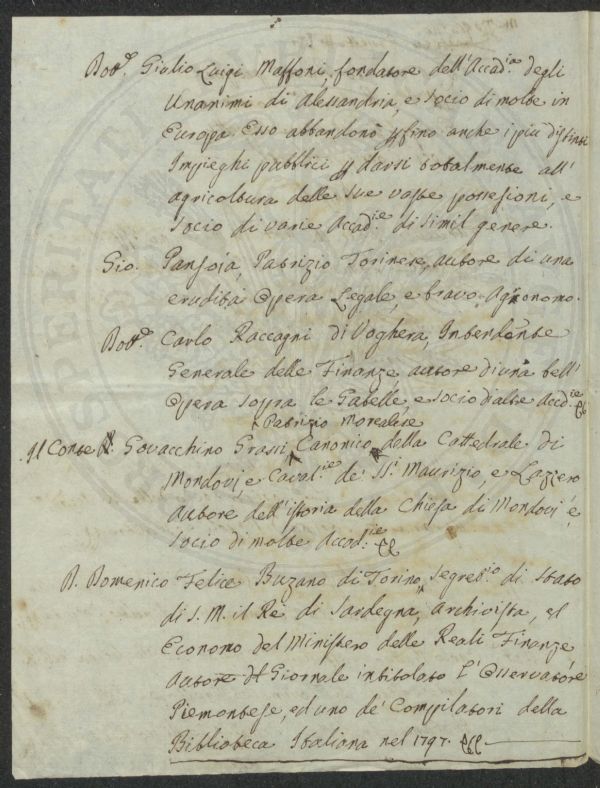 Dott.e Giulio Luigi Maffoni, fondatore dell'Accad.ia degli
Unanimi di Alessandria, e socio di molte in
Europa Esso abbandonò p fino anche i più distinti
Impieghi pubblici p darsi totalmente all'
agricoltura delle sue vaste possessioni, e
socio di varie Accad.ie di simil genere.
Gio. Pansoja, Patrizio Torinese, autore di una
erudita Opera Legale, e bravo Agronomo.
Dott.e Carlo Raccagni di Voghera, Intendente
Generale delle Finanze, autore di una bell'
Opera sopra le Gabelle, e socio d'altre Accad.ie
Patrizio Morealese
Il Conte Govacchino Grassi Canonico della Cattedrale di
Mondovì, e Caval.ie de' SS. Maurizio, e Lazzero
Autore dell'istoria della Chiesa di Mondovì e
socio di molte Accad.ie
D. Domenico Felice Buzano di Torino, Segret.io di Stato
di S. M. il Rè di Sardegna, Archivista, ed
Economo del Ministero delle Reali Finanze
Autore Giornale intitolato L'Osservatore
Piemontese, ed uno de' Compilatori della
Biblioteca Italiana nel 1797.